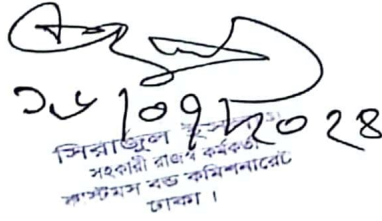 ১৮/০৭/২০২৪
সিরাজুল ইসলাম
সহকারী রাজস্ব কর্মকর্তা
কাস্টমস বন্ড কমিশনারেট
ঢাকা ।